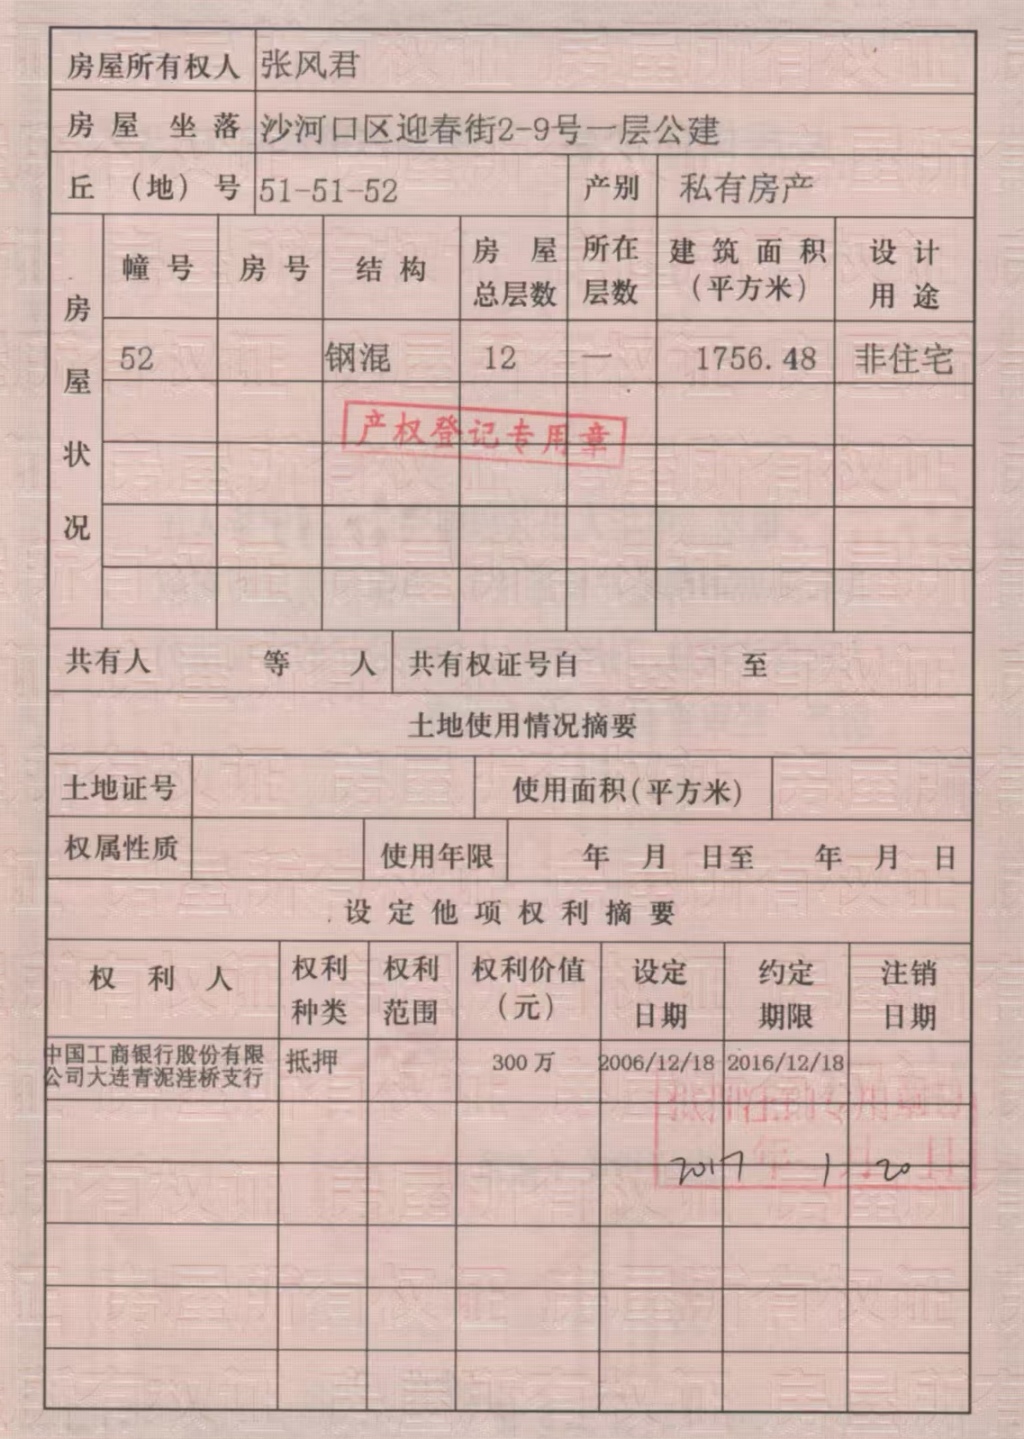 房屋所有权人 张风君
房屋坐落 沙河口区迎春街2-9号一层公建
丘（地）号 51-51-52 产别 私有房产
房屋状况
幢号 房号 结构 房屋总层数 所在层数 建筑面积（平方米） 设计用途
52 钢混 12 一 1756.48 非住宅
产权登记专用章
共有人 等 人 共有权证号自 至
土地使用情况摘要
土地证号 使用面积(平方米)
权属性质 使用年限 年 月 日至 年 月 日
设定他项权利摘要
权利人 权利种类 权利范围 权利价值（元） 设定日期 约定期限 注销日期
中国工商银行股份有限 抵押 300万 2006/12/18 2016/12/18
公司大连青泥洼桥支行
2017 年 1 月 20 日